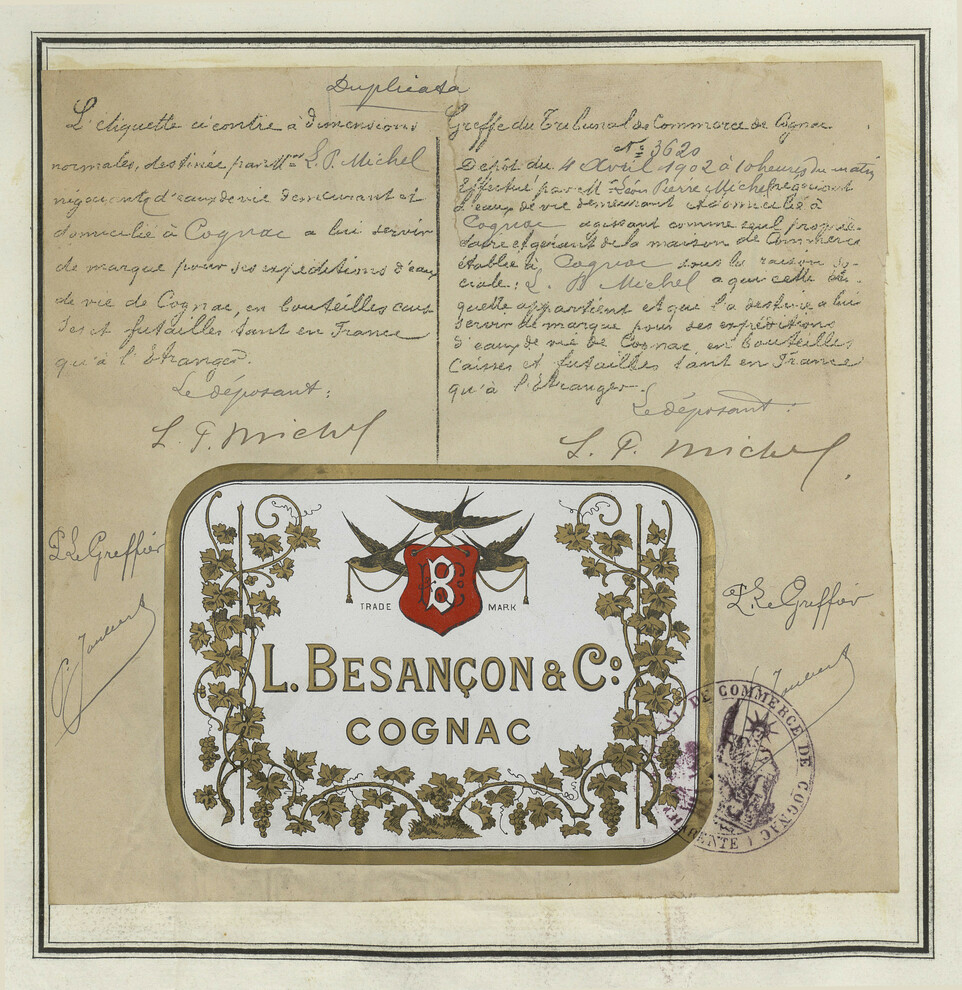 Duplicata
L'etiquette ci contre à dimensions
normales, destinée par Mr L. P. Michel
négociant d'eaux de vie demeurant et
domicilié à Cognac a lui servir
de marque pour ses expéditions d'eaux
de vie de Cognac, en bouteilles cais
ses et futailles tant en France
qu'à l'étranger.
Le déposant:
L. P. Michel
P. Le Greffier
Greffe du Tribunal de Commerce de Cognac
No 3620
Depôt du 4 Avril 1902 à 10 heures du matin
Effectué par M Léon Pierre Michel negociant
d'eaux de vie demeurant et domicilié à
Cognac agissant comme seul proprié-
taire et gérant de la maison de Commerce
établie à Cognac sous la raison So-
ciale: L. P. Michel a qui cette éti-
quette appartient et qui l'a destine a lui
servir de marque pour ses expéditions
d'eaux de vie de Cognac en bouteilles
Caisses et futailles tant en France
qu'à l'étranger.
Le déposant:
L. P. Michel.
P. Le Greffier
B
TRADE MARK
L. BESANÇON & Co.
COGNAC
DE COMMERCE DE COGNAC